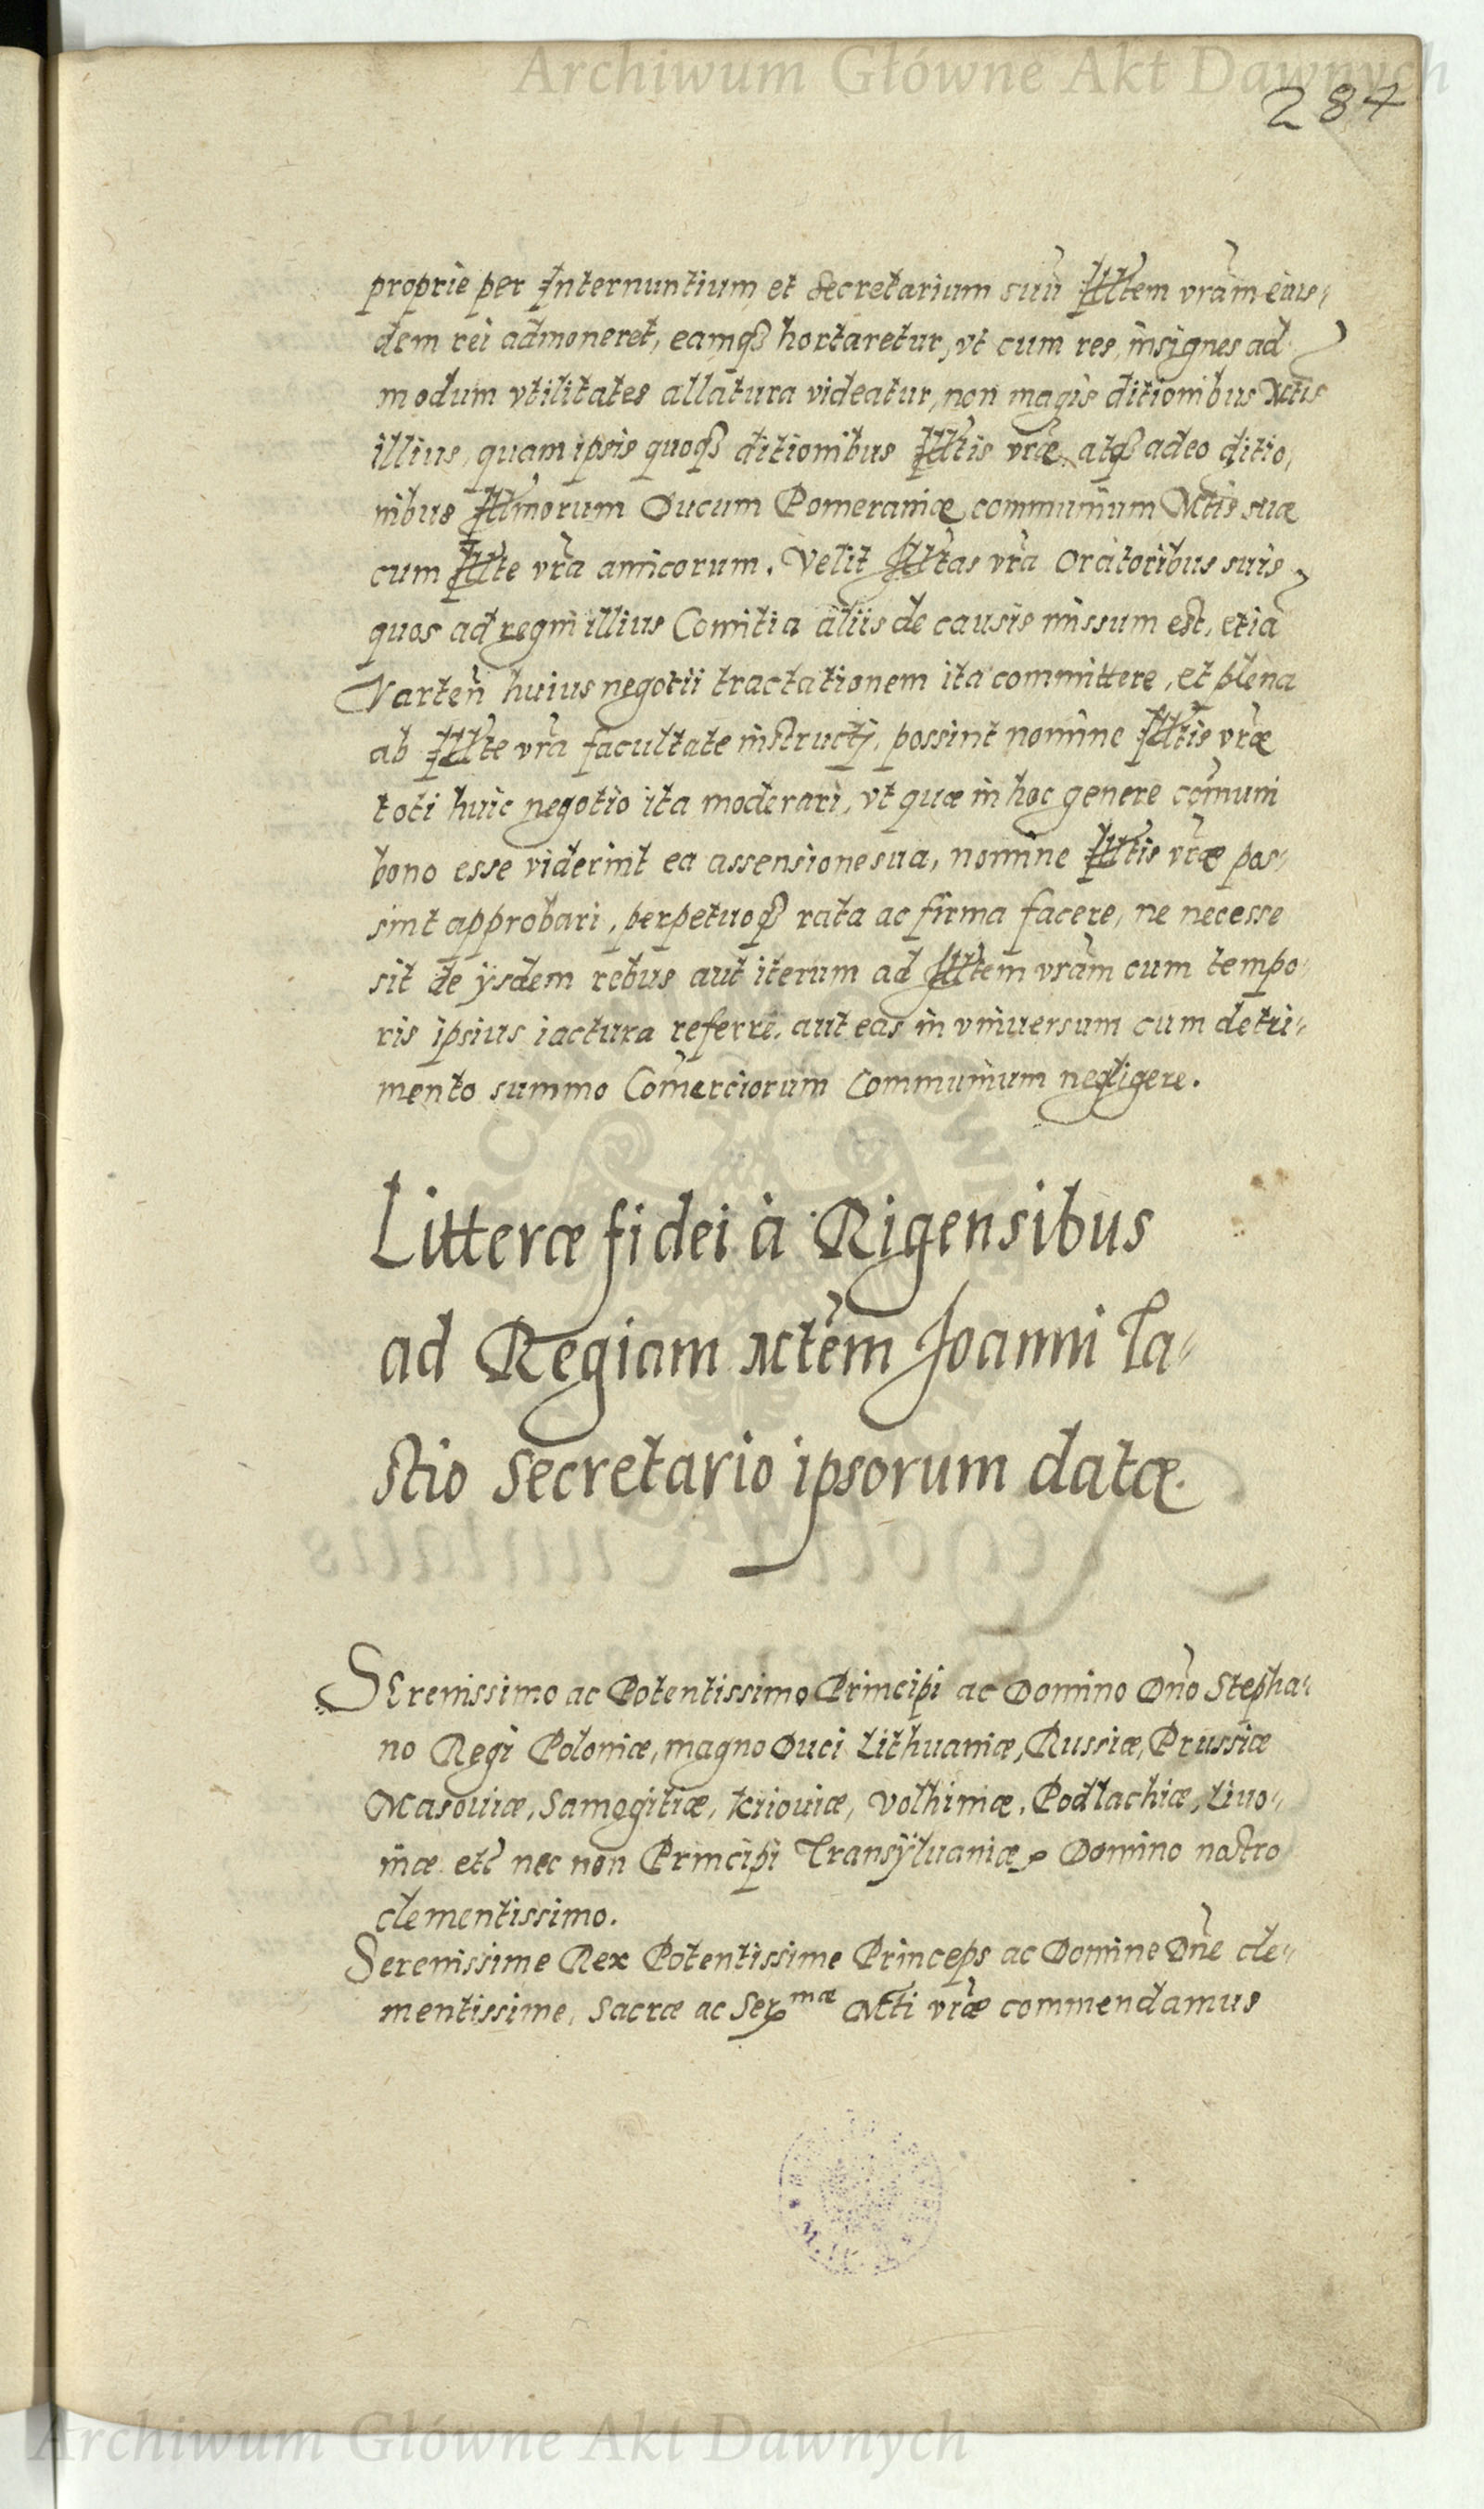 Archiwum Główne Akt Dawnych
284
proprie per Internuntium et Secretarium suũ Illtem vrãm eius-
dem rei admoneret, eamq₃ hortaretur, vt cum res insignes ad
modum vtilitates allatura videatur, non magis ditionibus Mtis
illius, quam ipsis quoq₃ ditionibus Illtis vræ, atq₃ adeo ditio,
nibus Illmorum Ducum Pomeraniæ communium Mtis suæ
cum Illte vrã amicorum. Velit Illtas vrã Oratoribus suis,
quos ad regni illius Comitia aliis de causis missum est, etiã
Varteñ huius negotii tractationem ita committere, et plena
ab Illte vrã facultate instructi, possint nomine Illtis vræ
toti huic negotio ita moderari, vt quæ in hoc genere cõmuni
bono esse viderint ea assensione sua, nomine Illtis vræ pos-
sint approbari, perpetuoq₃ rata ac firma facere, ne necesse
sit de ijsdem rebus aut iterum ad Illtem vrãm cum tempo-
ris ipsius iactura referre, aut eas in vniuersum cum detri-
mento summo Cõmerciorum communium negligere.
Litteræ fidei à Rigensibus
ad Regiam Mtem Joanni Ta-
stio Secretario ipsorum datæ.
SErenissimo ac Potentissimo Principi ac Domino Dño Stepha-
no Regi Poloniæ, magno Duci Lithuaniæ, Russiæ, Prussiæ
Masouiæ, Samogitiæ, Kiouiæ, Volhiniæ, Podlachiæ, Liuo-
niæ etc̃ nec non Principi Transÿluaniæ, Domino nostro
clementissimo.
Serenissime Rex Potentissime Princeps ac Domine Dñe cle-
mentissime, Sacræ ac Serᵐᵃᵉ Mti vræ commendamus
Archiwum Główne Akt Dawnych